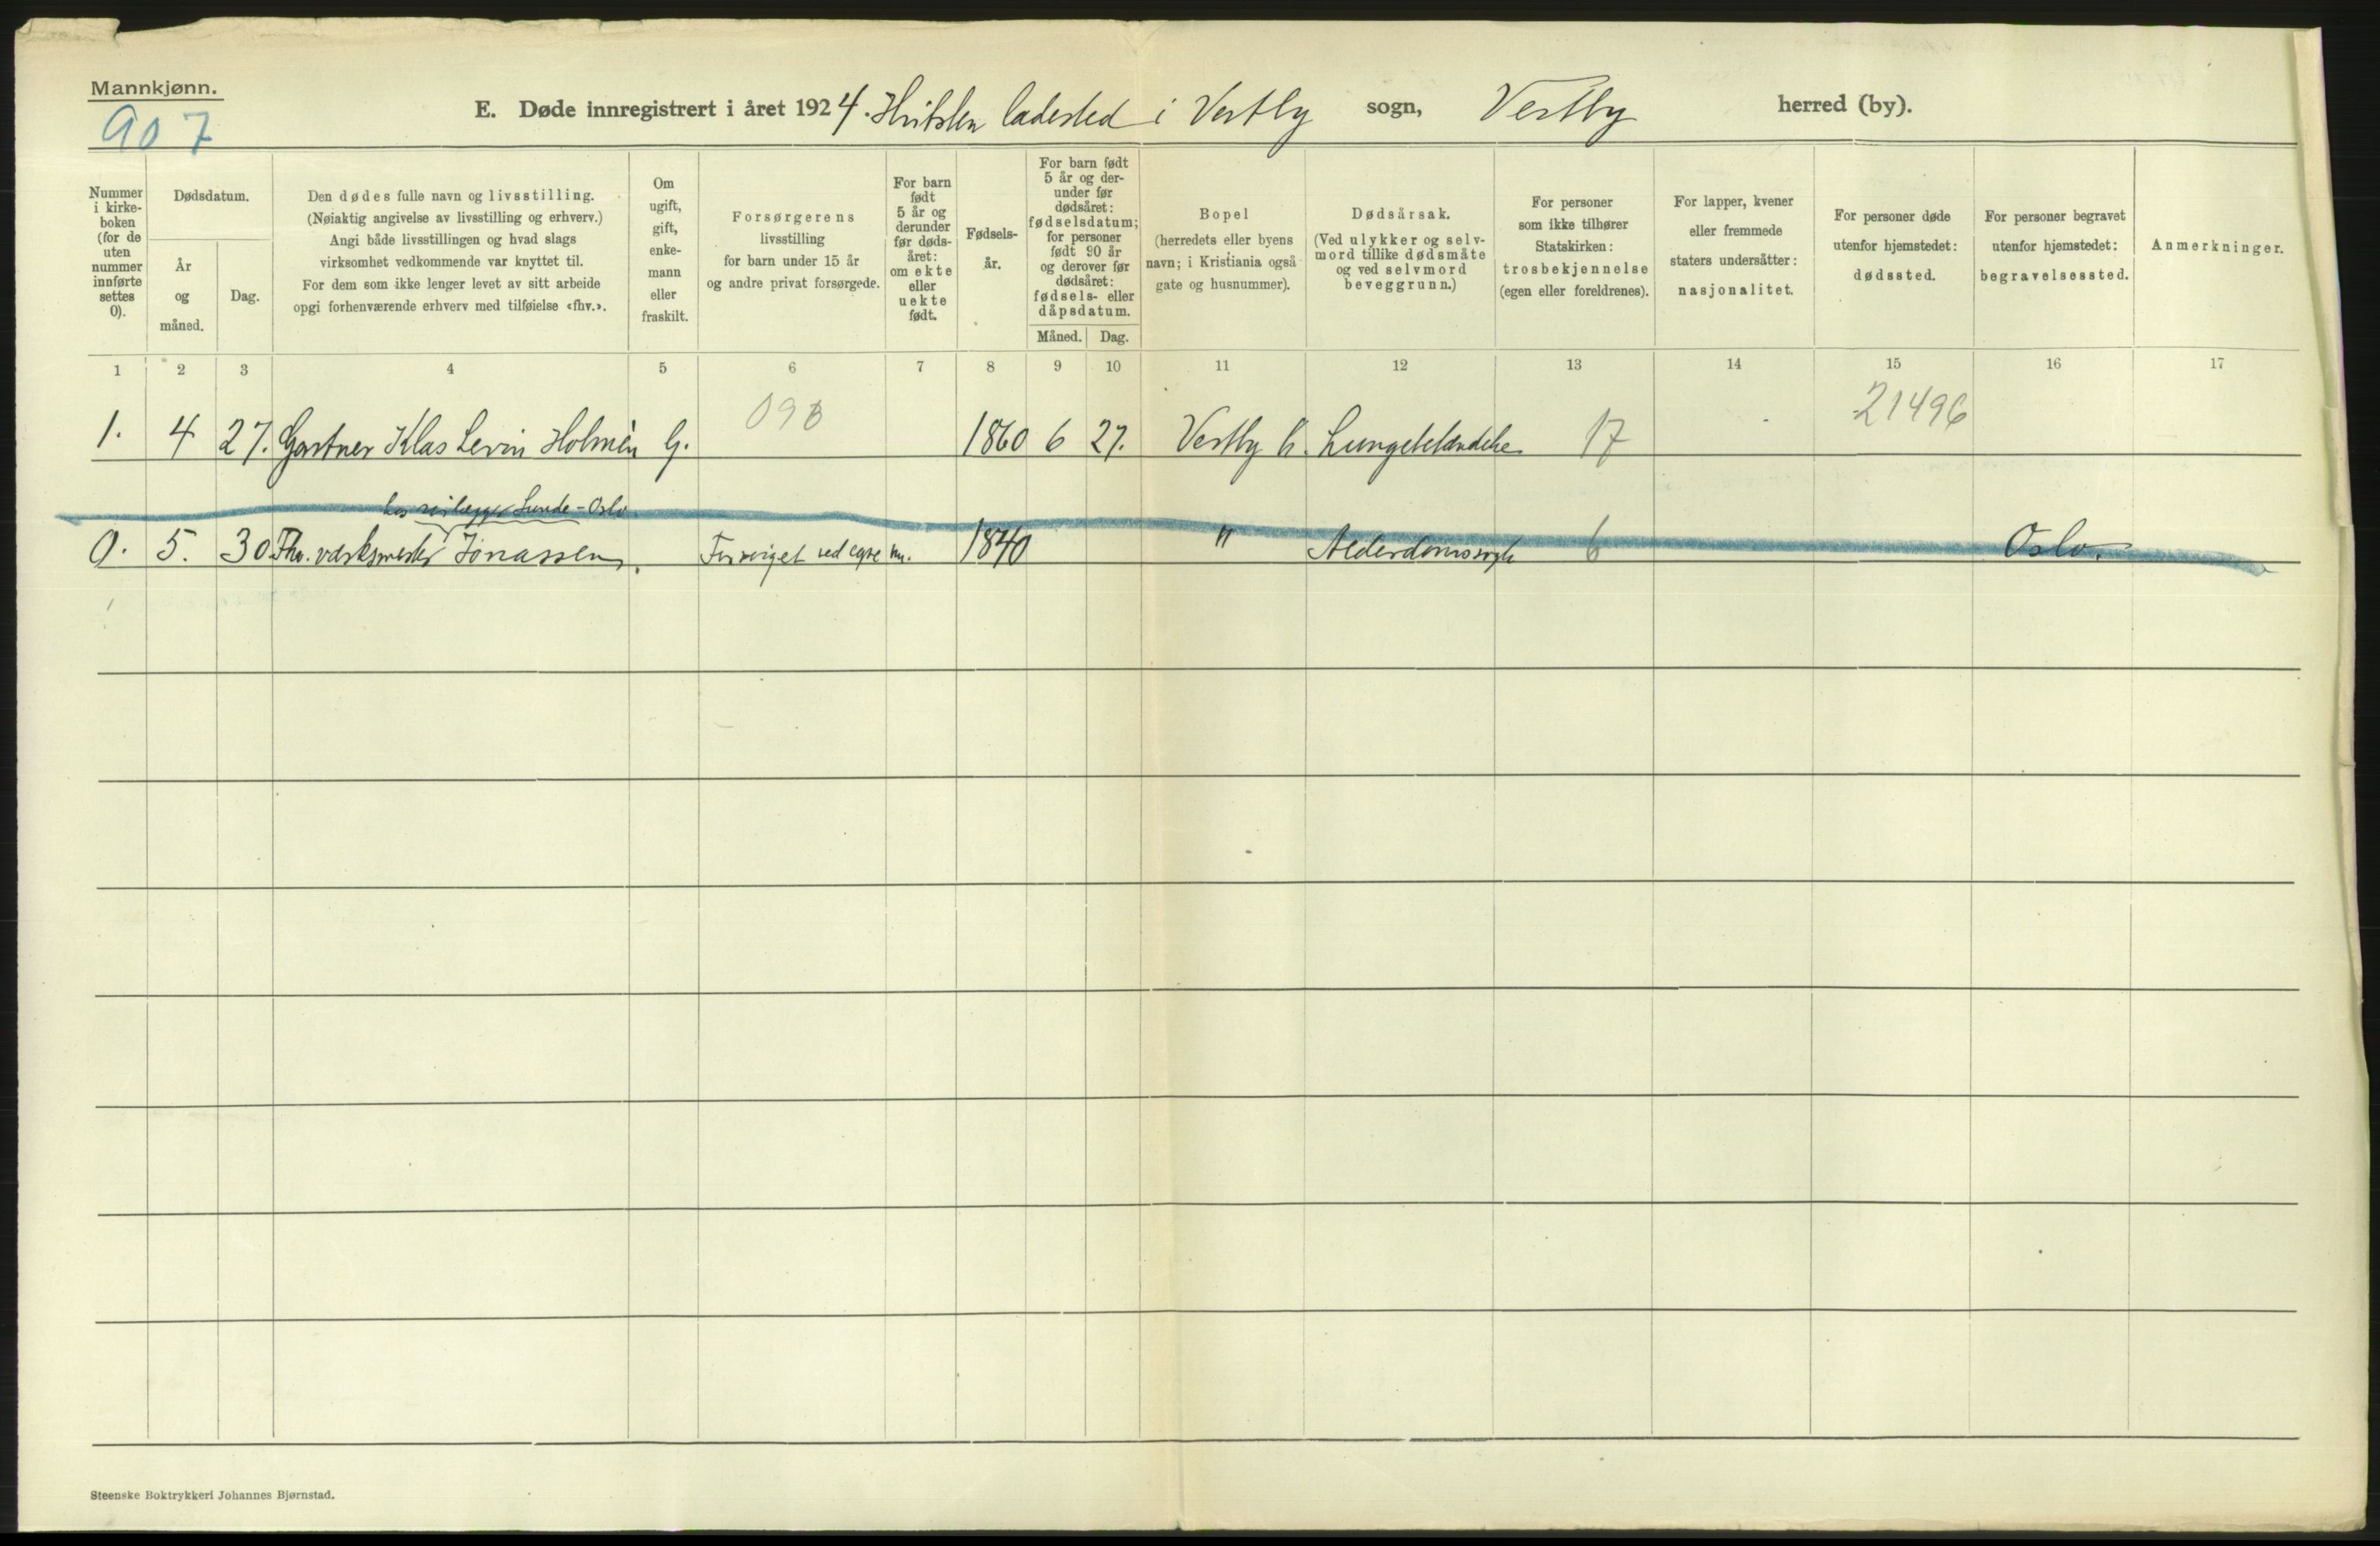 Mannkjønn.
907
E. Døde innregistrert i året 1924. Hvitsten ladested i Vestby sogn, Vestby herred (by).
Nummer i kirke- boken (for de uten nummer innførte settes 0).
Dødsdatum.
År og måned.
Dag.
Den dødes fulle navn og livsstilling.
(Nøiaktig angivelse av livsstilling og erhverv.)
Angi både livsstillingen og hvad slags
virksomhet vedkommende var knyttet til.
For dem som ikke lenger levet av sitt arbeide
opgi forhenværende erhverv med tilføielse «fhv.».
Om ugift, gift, enke- mann eller fraskilt.
Forsørgerens
livsstilling
for barn under 15 år
og andre privat forsørgede.
For barn født 5 år og derunder før døds- året: om ekte eller uekte født.
Fødsels- år.
For barn født 5 år og der- under før dødsåret: fødselsdatum; for personer født 90 år og derover før dødsåret: fødsels- eller dåpsdatum.
Måned. Dag.
Bopel
(herredets eller byens
navn; i Kristiania også
gate og husnummer).
Dødsårsak.
(Ved ulykker og selv-
mord tillike dødsmåte
og ved selvmord
beveggrunn.)
For personer
som ikke tilhører
Statskirken:
trosbekjennelse
(egen eller foreldrenes).
For lapper, kvener
eller fremmede
staters undersåtter:
nasjonalitet.
For personer døde
utenfor hjemstedet:
dødssted.
For personer begravet
utenfor hjemstedet:
begravelsessted.
Anmerkninger.
1 2 3 4 5 6 7 8 9 10 11 12 13 14 15 16 17
098 21496
1. 4 27. Gartner Klas Levin Holmèn G. 1860 6 27. Vestby h. Lungebetændelse 17
hos Lunde - Oslo
0. 5. 30 Fhv. værksmester Jonassen. Forsørget ved egne m. 1840 " Alderdomssvgh 6 Oslo.
Steenske Boktrykkeri Johannes Bjørnstad.